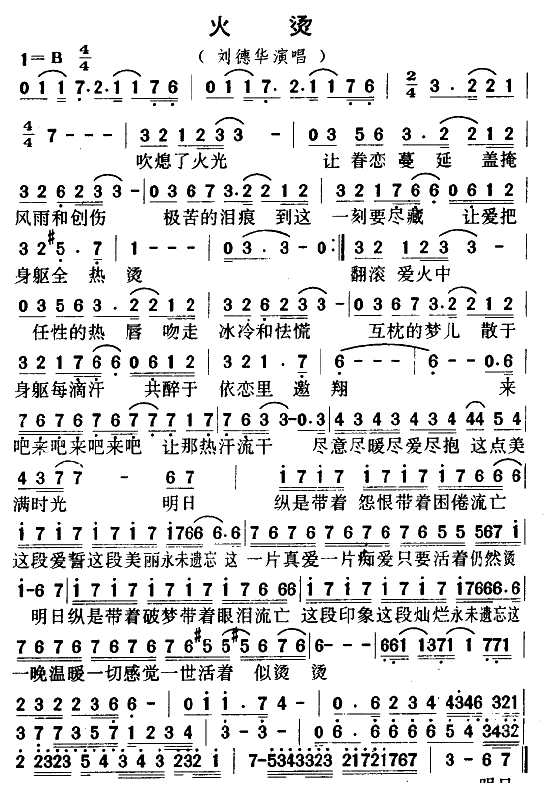 火 烫
1=B 4/4 （刘德华演唱）
0 1 1 7. 2. 1 1 7 6 | 0 1 1 7. 2. 1 1 7 6 | 2/4 3. 2 2 1 |
4/4 7 - - - | 3 2 1 2 3 3 - | 0 3 5 6 3. 2 2 1 2
吹熄了火光 让 眷恋 蔓 延 盖掩
3 2 6 2 3 3 - | 0 3 6 7 3. 2 2 1 2 | 3 2 1 7 6 6 0 6 1 2
风雨和创伤 极苦的泪痕 到这 一刻要尽藏 让爱把
3 2 #5. 7 | 1 - - - | 0 3. 3 - 0 :|| 3 2 1 2 3 3 -
身躯全 热 烫 翻滚 爱火中
0 3 5 6 3. 2 2 1 2 | 3 2 6 2 3 3 - | 0 3 6 7 3. 2 2 1 2
任性的热 唇 吻走 冰冷和怯慌 互枕的梦儿 散于
3 2 1 7 6 6 0 6 1 2 | 3 2 1. 7 | 6 - - - | 6 - - 0. 6
身躯每滴汗 共醉于 依恋里 遨 翔 来
7 6 7 6 7 6 7 7 7 1 7 | 7 6 3 3 - 0. 3 | 4 3 4 3 4 3 4 3 4 4 4 5 4
吧来吧来吧来吧 让那热汗流干 尽意尽暖尽爱尽抱 这点美
4 3 7 7 - 6 7 | i 7 i 7 i 7 i 7 i 7 i 7 6 6 6
满时光 明日 纵是带着 怨恨带着困倦流亡
i 7 i 7 i 7 i 7 i 7 6 6 6. 6 | 7 6 7 6 7 6 7 6 7 6 5 5 5 6 7 i
这段爱誓这段美丽永未遗忘 这 一片真爱一片痴爱只要活着仍然烫
i - 6 7 | i 7 i 7 i 7 i 7 i 7 i 7 6 6 | i 7 i 7 i 7 i 7 i 7 6 6 6. 6
明日纵是带着破梦带着眼泪流亡 这段印象这段灿烂永未遗忘这
7 6 7 6 7 6 7 6 #5 5 #5 6 7 6 | 6 - - - | 6 6 1 1 3 7 1 1 7 7 1
一晚温暖一切感觉一世活着 似烫 烫
2 3 2 2 3 6 6 - | 0 i i. 7 4 - | 0. 6 2 3 4 4 3 4 6 3 2 1
3 7 7 3 5 7 1 2 3 4 | 3 - 3 - | 0. 6 6. 7 6 5 3 4 3 2
2 2 3 2 3 5 4 3 4 3 2 3 2 1 | 7 - 5 3 4 3 3 2 3 2 1 7 2 1 7 6 7 | 3 - 6 7 ||
明日